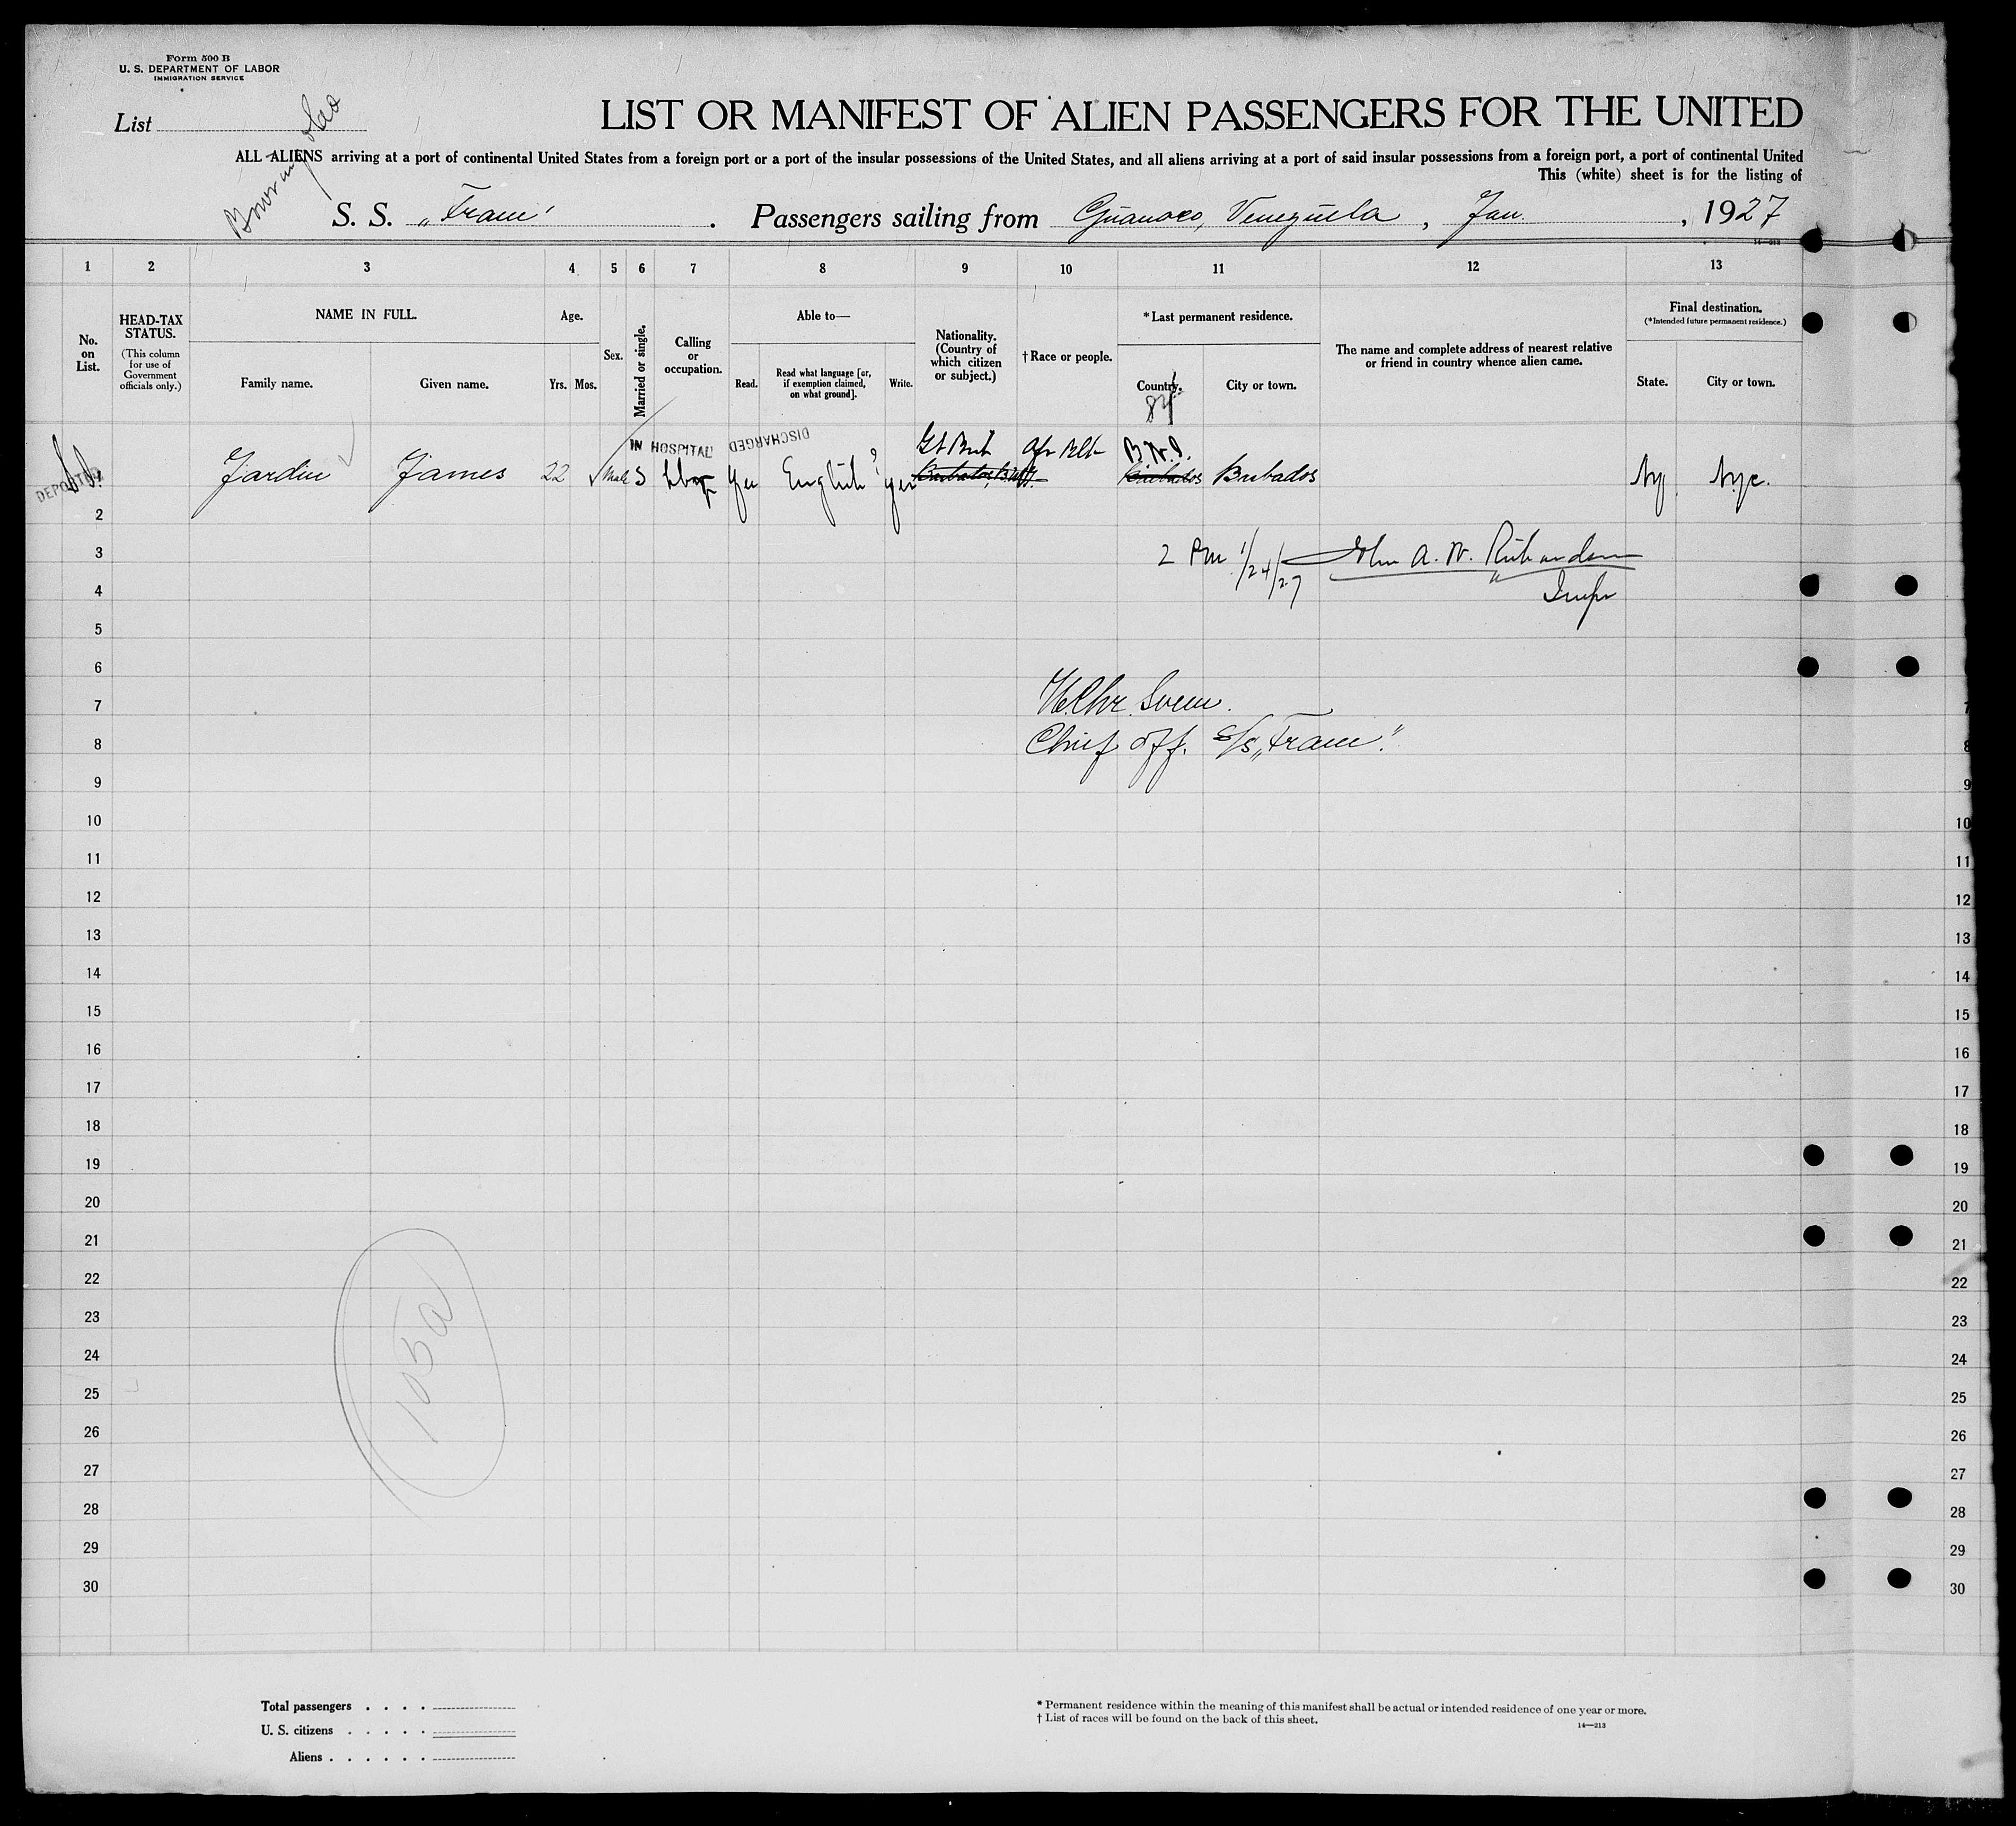 Form 500 B
U. S. DEPARTMENT OF LABOR
IMMIGRATION SERVICE
List
LIST OR MANIFEST OF ALIEN PASSENGERS FOR THE UNITED
ALL ALIENS arriving at a port of continental United States from a foreign port or a port of the insular possessions of the United States, and all aliens arriving at a port of said insular possessions from a foreign port, a port of continental United
This (white) sheet is for the listing of
S. S. „Fram" . Passengers sailing from Guanoco, Venezuela , Jan. , 1927
14—213
1 2 3 4 5 6 7 8 9 10 11 12 13
No. on List.
HEAD-TAX STATUS.
(This column for use of Government officials only.)
NAME IN FULL.
Family name. Given name.
Age.
Yrs. Mos.
Sex.
Married or single.
Calling or occupation.
Able to—
Read. Read what language [or, if exemption claimed, on what ground]. Write.
Nationality. (Country of which citizen or subject.)
†Race or people.
*Last permanent residence.
Country. City or town.
84
The name and complete address of nearest relative or friend in country whence alien came.
Final destination.
(*Intended future permanent residence.)
State. City or town.
IN HOSPITAL DISCHARGED
Gt Brit Afr Blk B.W.I.
DEPORTED
Jardin James 22 Male S yes English yes Barbados Barbados Barbados NY N.Y.C.
2
3
2 PM 1/24/27 John A. W. Richardson
4
Inspr
5
6
7
Chief off. S/S „Fram".
8
9
10
11
12
13
14
15
16
17
18
19
20
21
22
23
24
25
26
27
28
29
30
105a
7
8
9
10
11
12
13
14
15
16
17
18
19
20
21
22
23
24
25
26
27
28
29
30
Total passengers . . . .
U. S. citizens . . . . .
Aliens . . . . . .
* Permanent residence within the meaning of this manifest shall be actual or intended residence of one year or more.
† List of races will be found on the back of this sheet.
14—213